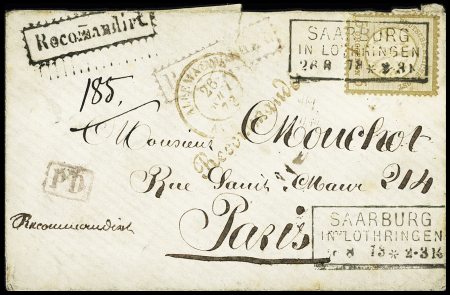 Recomandirt
SAARBURG
IN LOTHRINGEN
26 8 73 * 2-3N
185.
Recommandé
Monsieur Mouchot
PD
Rue Saint Maur 214
Recommandirt
Paris
SAARBURG
IN LOTHRINGEN
8 73 * 2-3N